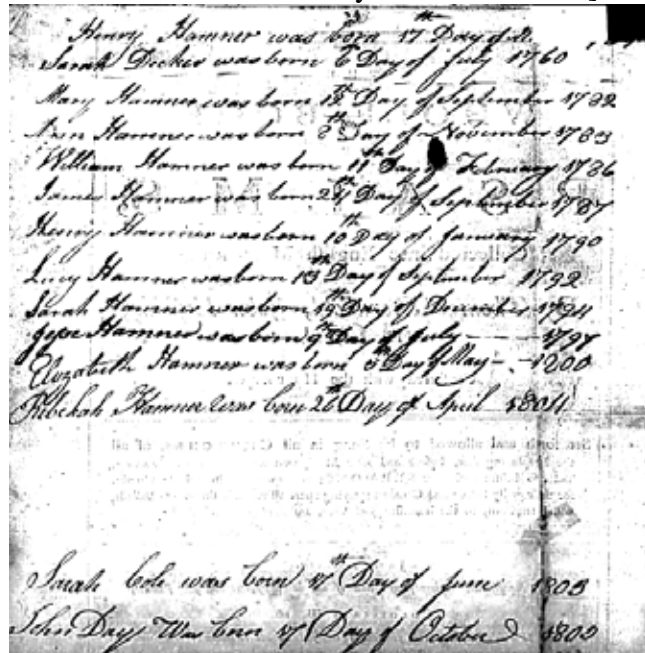 Henry Hamner was born 17th Day of
Sarah Decker was born 6 Day of July 1760
Mary Hamner was born 12th Day of September 1782
Ann Hamner was born 8th Day of November 1783
William Hamner was born 11th Day of February 1786
James Hamner was born 24th Day of September 1787
Henry Hamner was born 10th Day of January 1790
Lucy Hamner was born 13th Day of September 1792
Sarah Hamner was born 19th Day of December 1794
Jesse Hamner was born 9th Day of July 1797
Elizabeth Hamner was born 5th Day of May 1800
Rebekah Hamner was born 26th Day of April
Sarah Cole was born 17th Day of June 1803
John Day Was born 17 Day of October